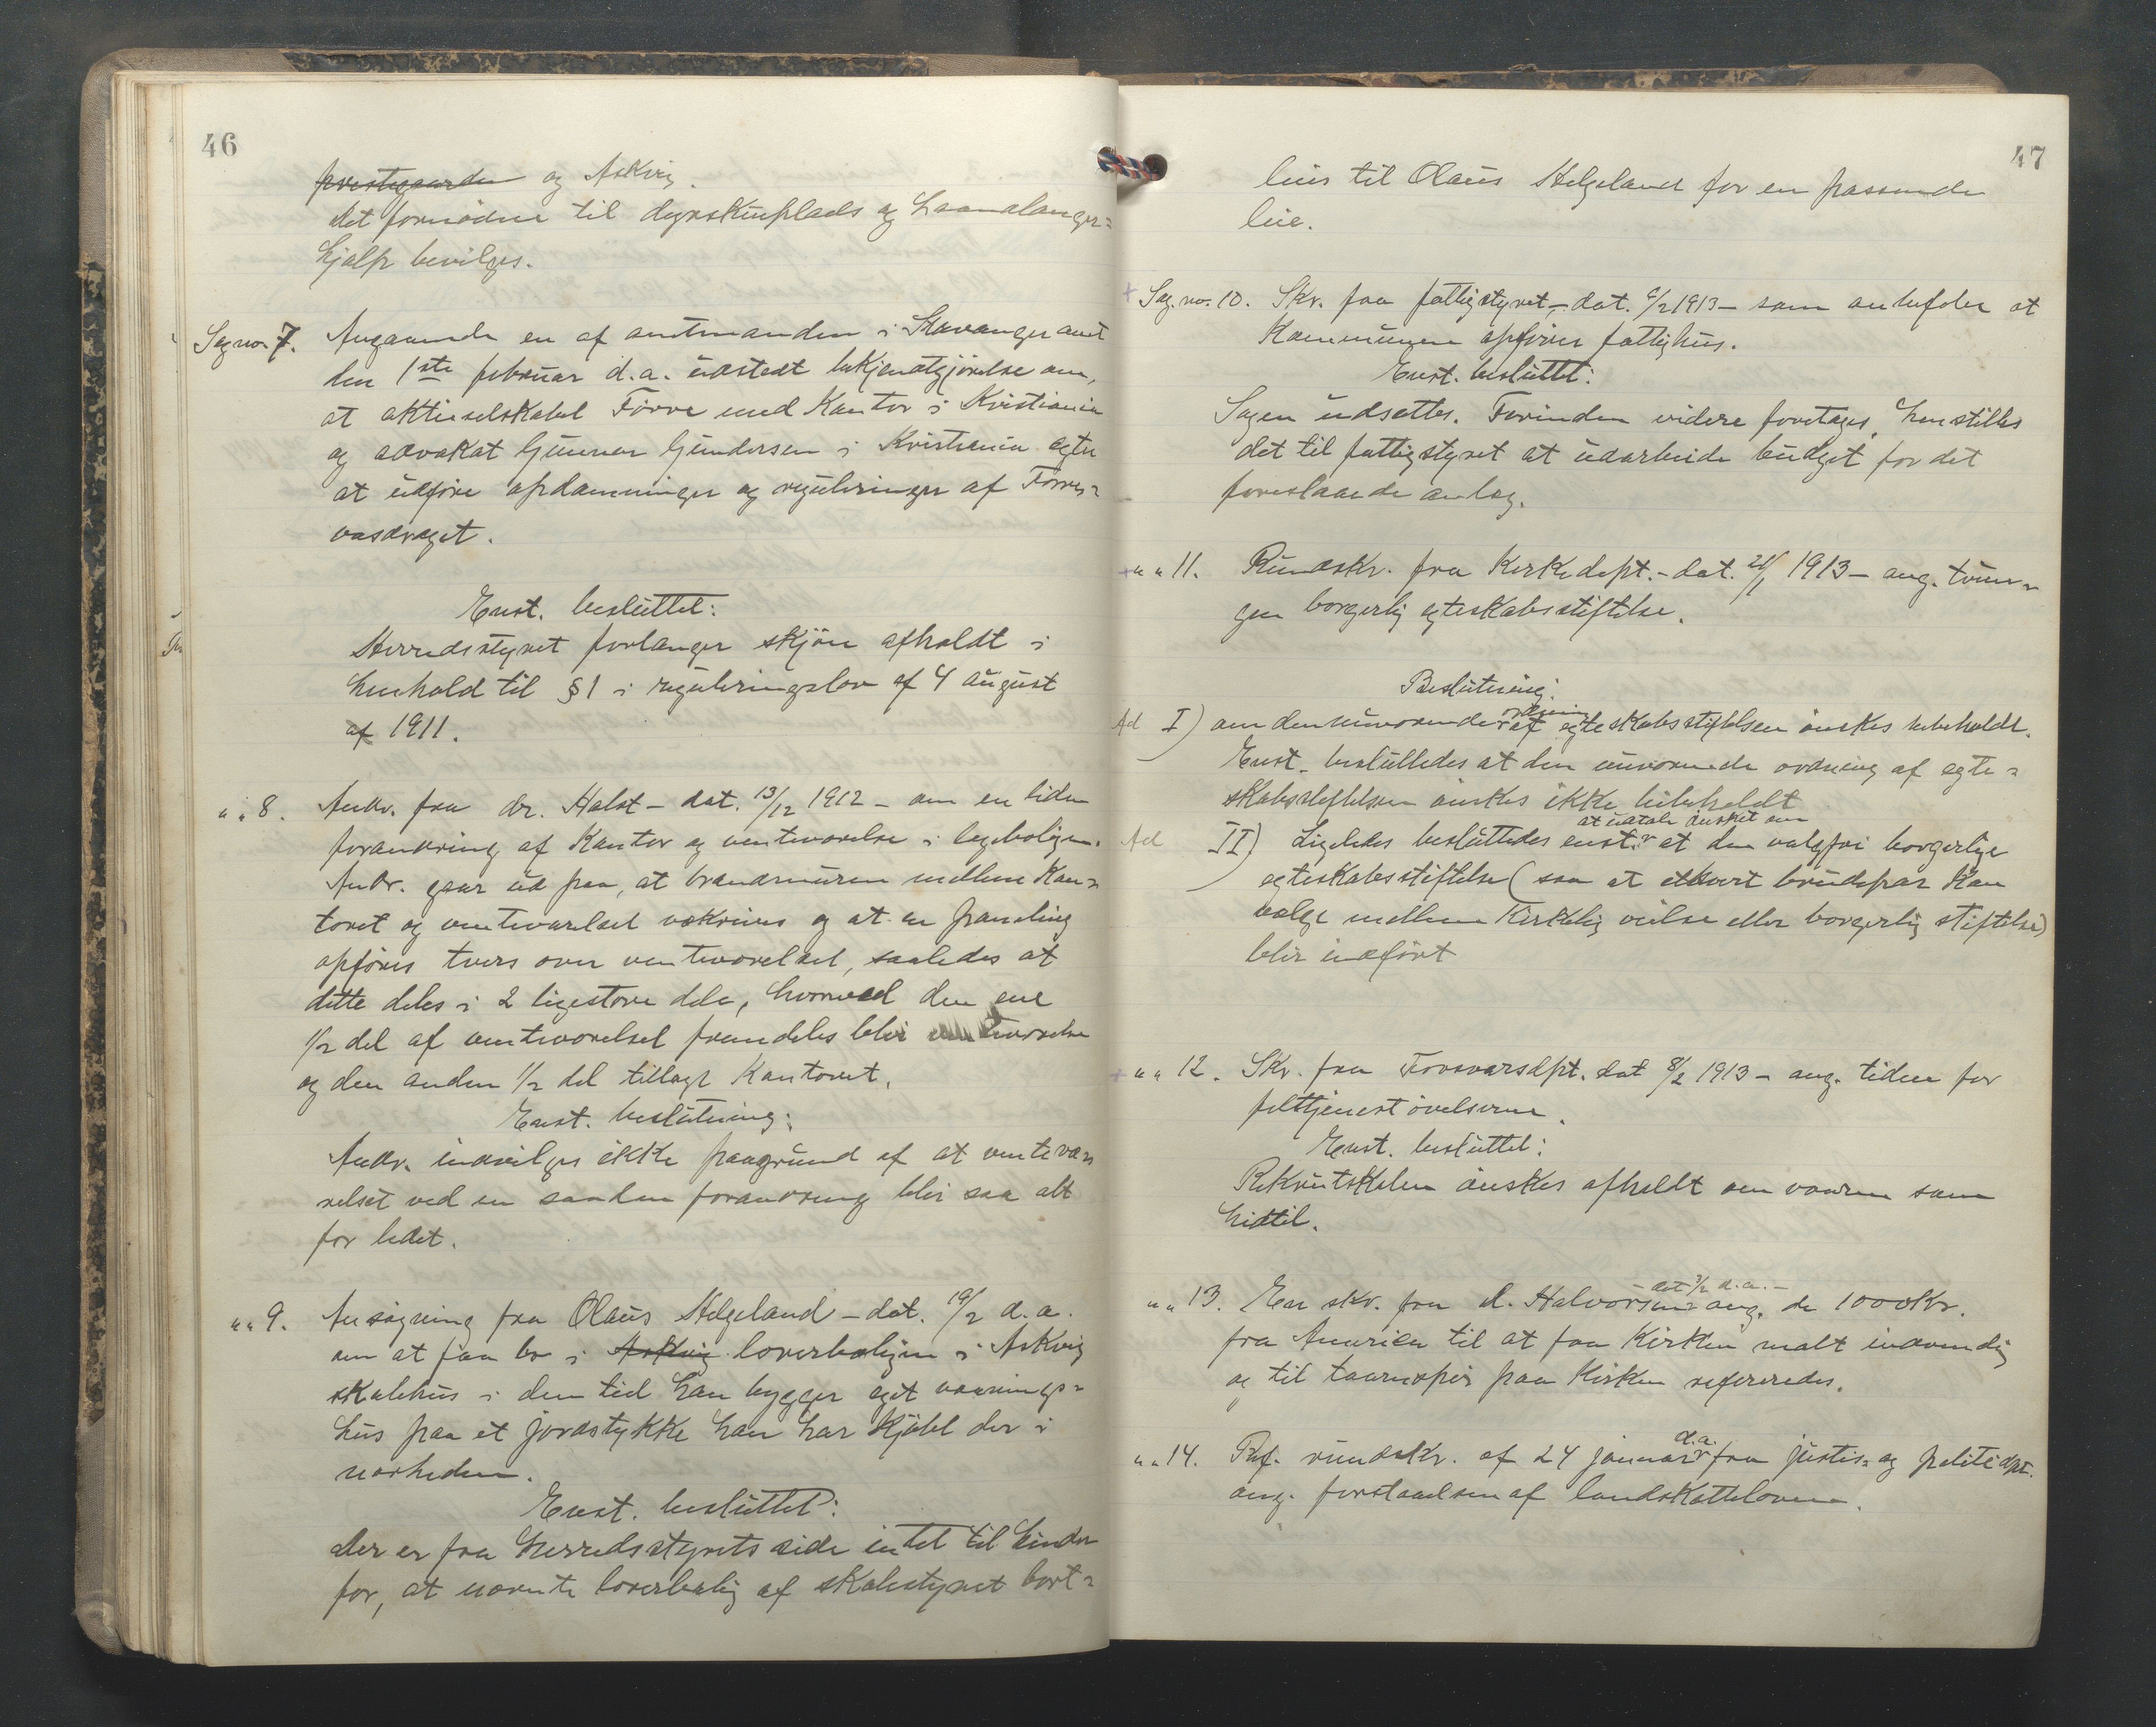 46
prestegaarden og Askvig.
det fornødne til dyrskueplads og haandlanger=
hjælp bevilges.
Sag no. 7. Angaaende en af amtmanden i Stavanger amt
den 1ste februar d.a. udstedt bekjendtgjørelse om,
at aktieselskabet Førre med kontor i Kristiania
og advokat Gunnar Gundersen i Kristiania agter
at udføre opdæmninger og reguleringer af Førres=
vasdraget.
Enst. besluttet:
Herredsstyret forlanger skjøn afholdt i
henhold til § 1 i reguleringslov af 4 august
af 1911.
" " 8. Andr. fra dr. Holst - dat. 13/12 1912 - om en liden
forandring af kontor og venteværelse i lægeboligen.
Andr. gaar ud paa, at brandmuren mellem kon=
toret og venteværelset nedrives og at en paneling
opføres tvers over venteværelset, saaledes at
dette deles i 2 ligestore dele, hvorved den ene
1/2 del af venteværelset fremdeles blir venteværelse
og den anden 1/2 del tillagt kontoret.
Enst. beslutning:
Andr. indvilges ikke paagrund af at ventevæ=
relset ved en saadan forandring blir saa alt
for lidet.
" " 9. Ansøgning fra Olaus Helgeland - dat. 19/2 d.a.
om at faa bo i Askvig lærerboligen i Askvig
skolehus i den tid han bygger eget vaanings=
hus paa et jordstykke han har kjøbt der i
nærheden.
Enst. besluttet:
Der er fra herredsstyrets side intet til hinder
for, at nævnte lærerbolig af skolestyret bort=
47
leies til Olaus Helgeland for en passende
leie.
Sag no. 10. Skr. fra fattigstyret, - dat. 6/2 1913 - som anbefaler at
kommunen opfører fattighus.
Enst. besluttet:
Sagen udsættes. Forinden videre foretages, henstilles
det til fattigstyret at udarbeide budget for det
foreslaaede anlæg.
" " 11. Rundskr. fra Kirkedept. - dat. 21/1 1913 - ang. tvun=
gen borgerlig egteskabsstiftelse.
Beslutning:
ordning
Ad I) om den nuværende af egteskabsstiftelsen ønskes bibeholdt.
Enst. besluttedes at den nuværende ordning af egte=
skabsstiftelsen ønskes ikke bibeholdt
at udtale ønsket om
Ad II) Ligeledes besluttedes enst. at den valgfri borgerlige
egteskabsstiftelse (saa at ethvert brudepar kan
vælge mellem kirkelig vielse eller borgerlig stiftelse)
blir indført
" " 12. Skr. fra Forsvarsdpt. dat 8/2 1913 - ang. tiden for
felttjenestøvelserne.
Enst. besluttet:
Rekrutskolen ønskes afholdt om vaaren som
hidtil.
- dat 3/2 d.a. -
" " 13. En skr. fra d. Halvorsen ang. de 1000 kr.
fra Amerika til at faa kirken malt indvendig
og til taarnspir paa kirken refereredes.
d.a.
" " 14. Ref. rundskr. af 24 januar fra justis= og politidpt.
ang. forstaaelsen af landskatteloven.